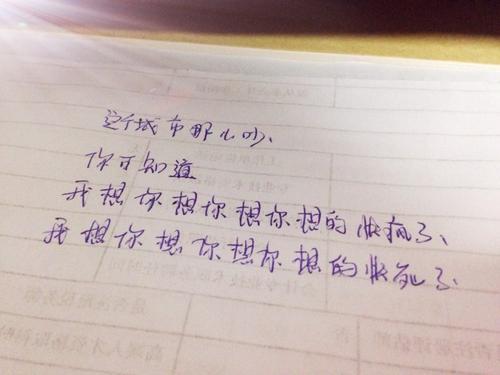 这个城市那么吵、
你可知道
我想你想你想你想的快疯了、
我想你想你想你想的快死了、